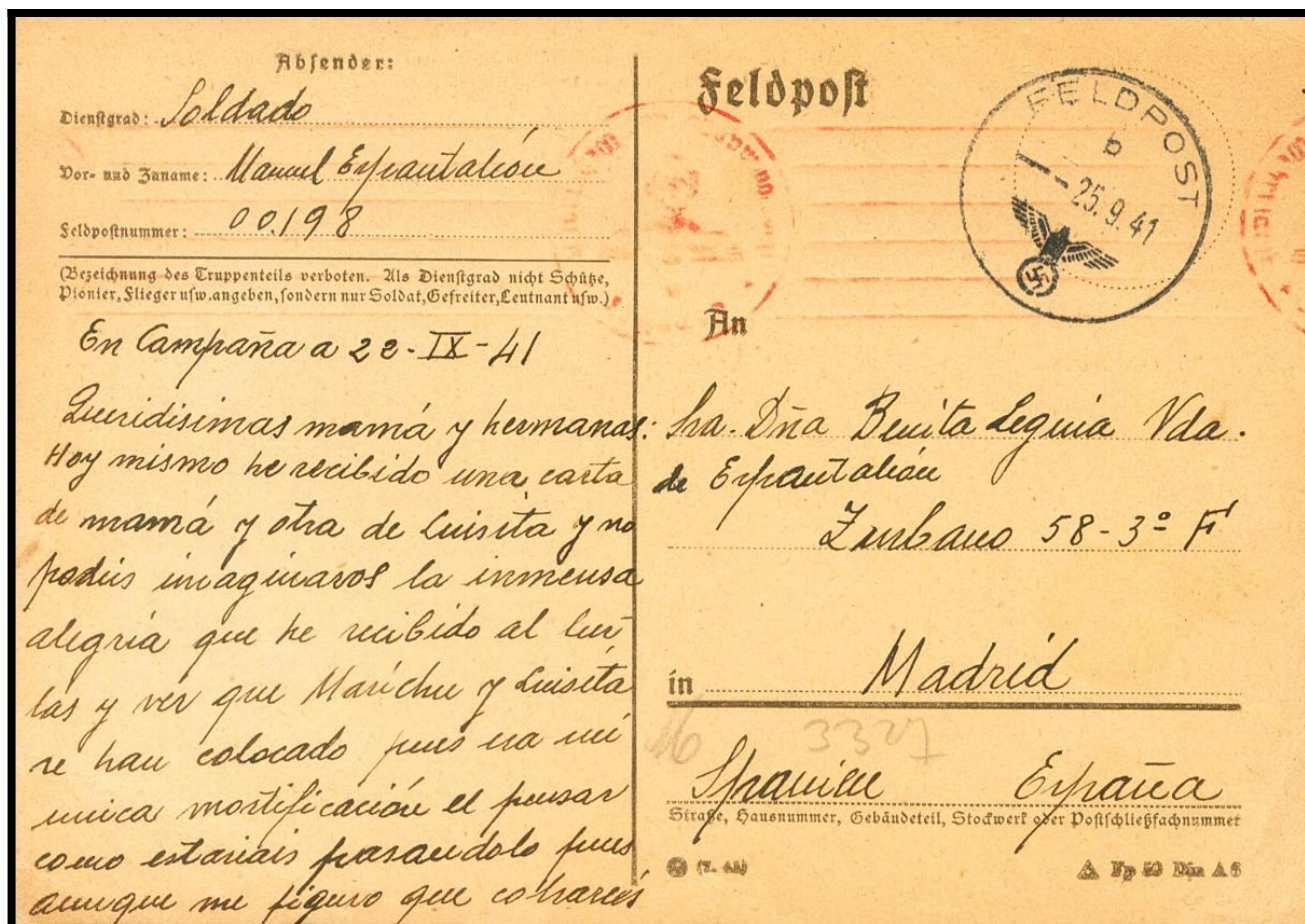 Absender:
Dienstgrad: Soldado
Vor- und Zuname: Manuel Espantaleón
Feldpostnummer: 00.198
(Bezeichnung des Truppenteils verboten. Als Dienstgrad nicht Schütze,
Pionier, Flieger usw. angeben, sondern nur Soldat, Gefreiter, Leutnant usw.)
En Campaña a 22-IX-41
Queridisimas mamá y hermanas:
Hoy mismo he recibido una carta
de mamá y otra de Luisita y no
podeis imaginaros la inmensa
alegria que he recibido al leer
las y ver que Marichu y Luisita
se han colocado pues era mi
unica mortificación el pensar
como estariais pasandolo pues
aunque me figuro que cobrareis
Feldpost
FELDPOST
b
25.9.41
An
Sra. Dña Benita Leguia Vda.
de Espantaleón
Zurbano 58-3º
in Madrid
16 3327
Spanien España
Straße, Hausnummer, Gebäudeteil, Stockwerk oder Postschließfachnummer
Fp 50 Din A 6